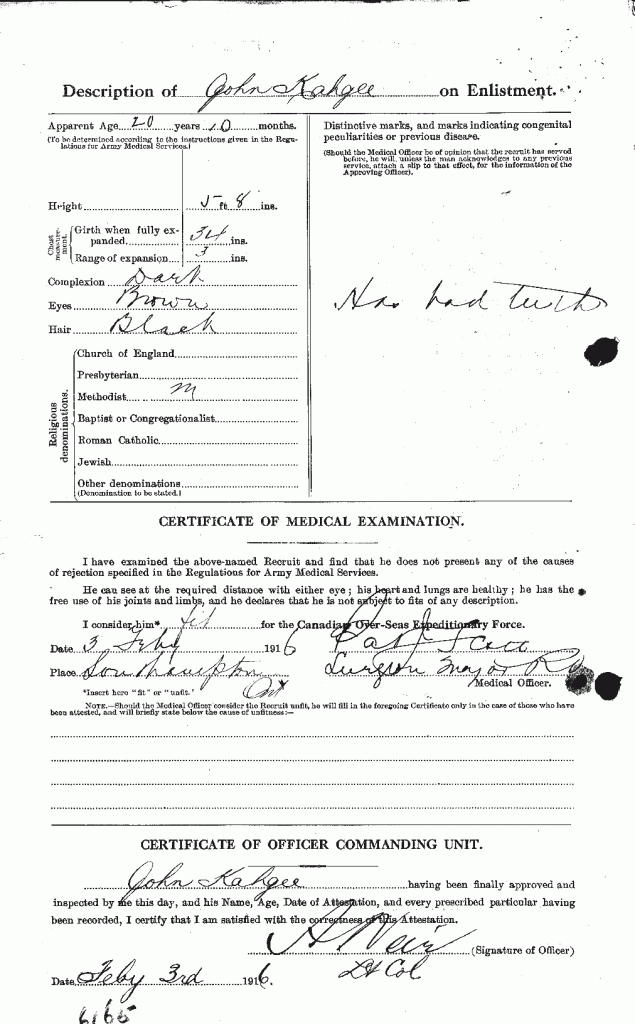 Description of John Kahgee on Enlistment.
Apparent Age 20 years 10 months.
(To be determined according to the instructions given in the Regu-
lations for Army Medical Services.)
Height 5 ft. 8 ins.
Chest
measure-
ment.
Girth when fully ex-
panded 34 ins.
Range of expansion 3 ins.
Complexion Dark
Eyes Brown
Hair Black
Religious
denominations.
Church of England
Presbyterian
Methodist M
Baptist or Congregationalist
Roman Catholic
Jewish
Other denominations
(Denomination to be stated.)
Distinctive marks, and marks indicating congenital
peculiarities or previous disease.
(Should the Medical Officer be of opinion that the recruit has served
before, he will, unless the man acknowledges to any previous
service, attach a slip to that effect, for the information of the
Approving Officer).
Has bad teeth
CERTIFICATE OF MEDICAL EXAMINATION.
I have examined the above-named Recruit and find that he does not present any of the causes
of rejection specified in the Regulations for Army Medical Services.
He can see at the required distance with either eye; his heart and lungs are healthy; he has the
free use of his joints and limbs, and he declares that he is not subject to fits of any description.
I consider him* fit for the Canadian Over-Seas Expeditionary Force.
Date 3 Feby 1916
Place Southampton Ont Surgeon Major
Medical Officer.
*Insert here "fit" or "unfit."
NOTE.—Should the Medical Officer consider the Recruit unfit, he will fill in the foregoing Certificate only in the case of those who have
been attested, and will briefly state below the cause of unfitness:—
CERTIFICATE OF OFFICER COMMANDING UNIT.
John Kahgee having been finally approved and
inspected by me this day, and his Name, Age, Date of Attestation, and every prescribed particular having
been recorded, I certify that I am satisfied with the correctness of this Attestation.
A Weir (Signature of Officer)
Lt Col
Date Feby 3rd 1916.
6165